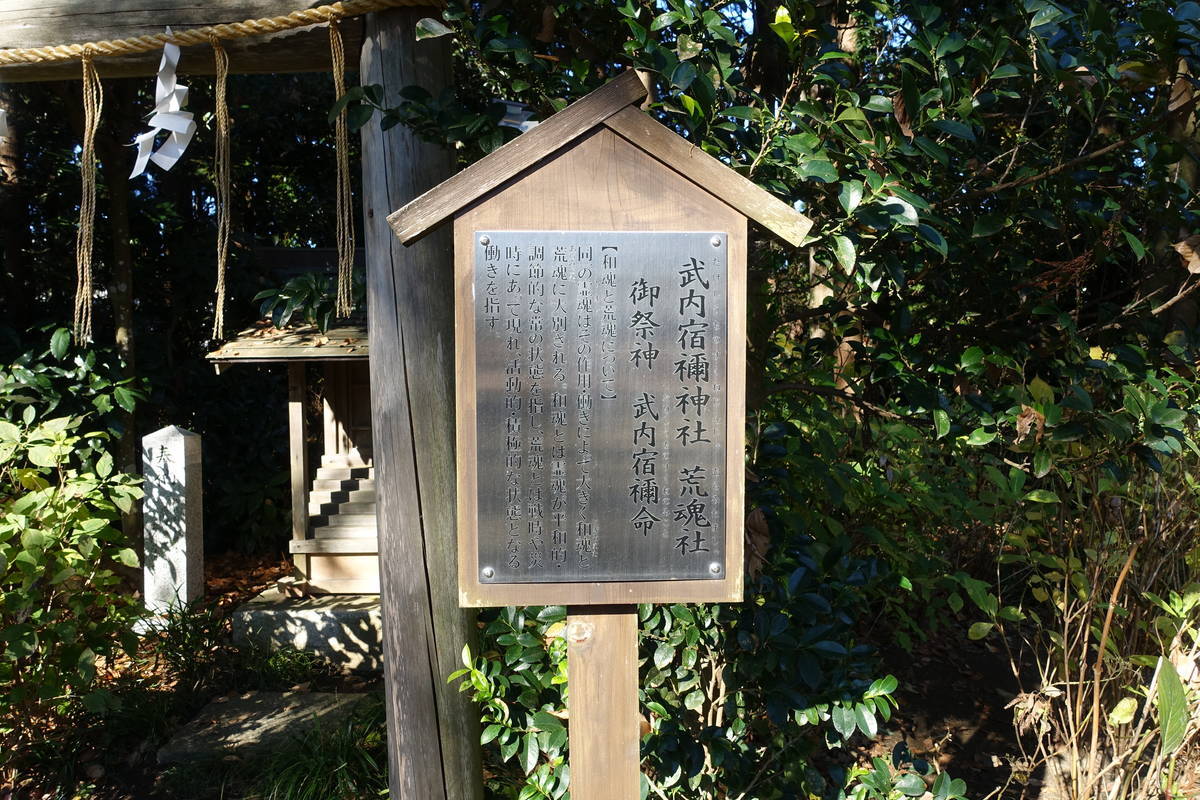 武内宿禰神社 荒魂社
御祭神 武内宿禰命
【和魂と荒魂について】
同一の霊魂はその作用・働きによって大きく和魂と
荒魂に大別される。和魂とは霊魂が平和的・
調節的な常の状態を指し、荒魂とは戦時や災
時にあって現れ、活動的・積極的な状態となる
働きを指す。
奉